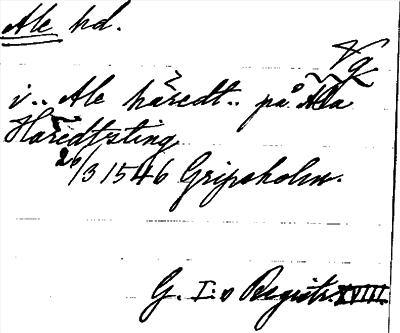 Ale hd.
Vg
i.. Ale häredt.. på Ala
Häredtzting
26/3 1546 Gripsholm.
G. I:s Registr. XVIII.